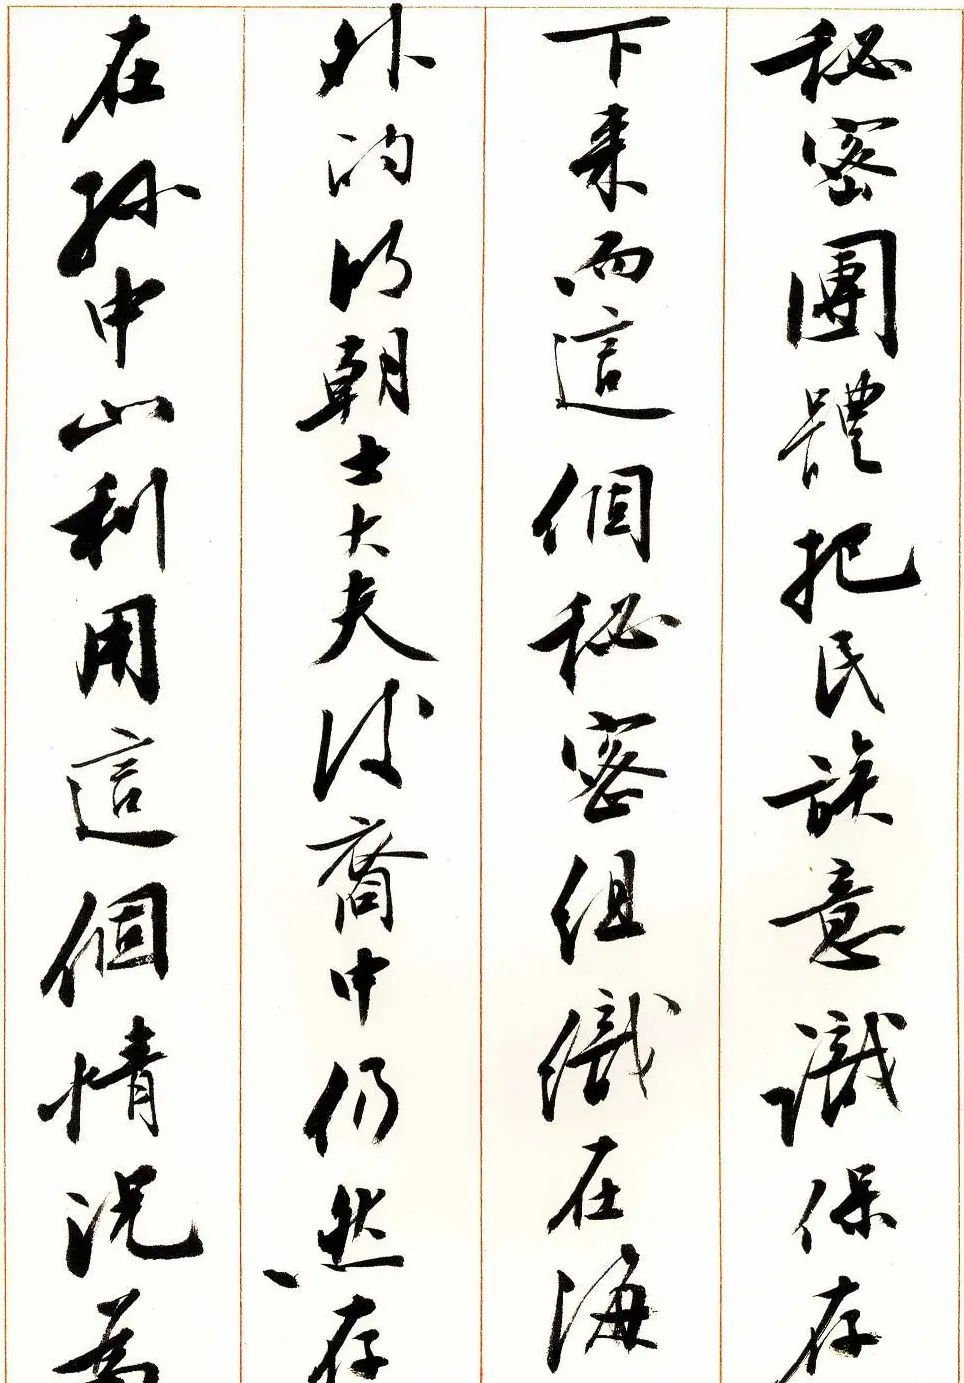 秘密團體把民族意識保存
下来而這個秘密组織在海
外的明朝士大夫後裔中仍然存
在孫中山利用這個情况為